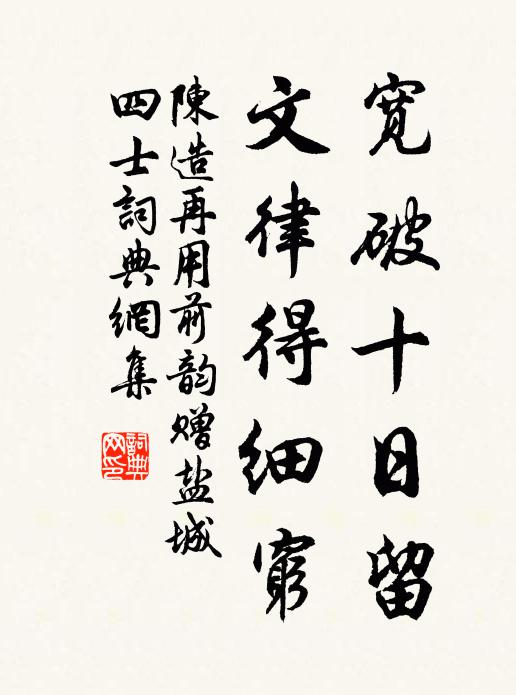 寬破十日留
文律得細窮
陳造再用前韵贈盐城
四士詞典網集
詞典
网印